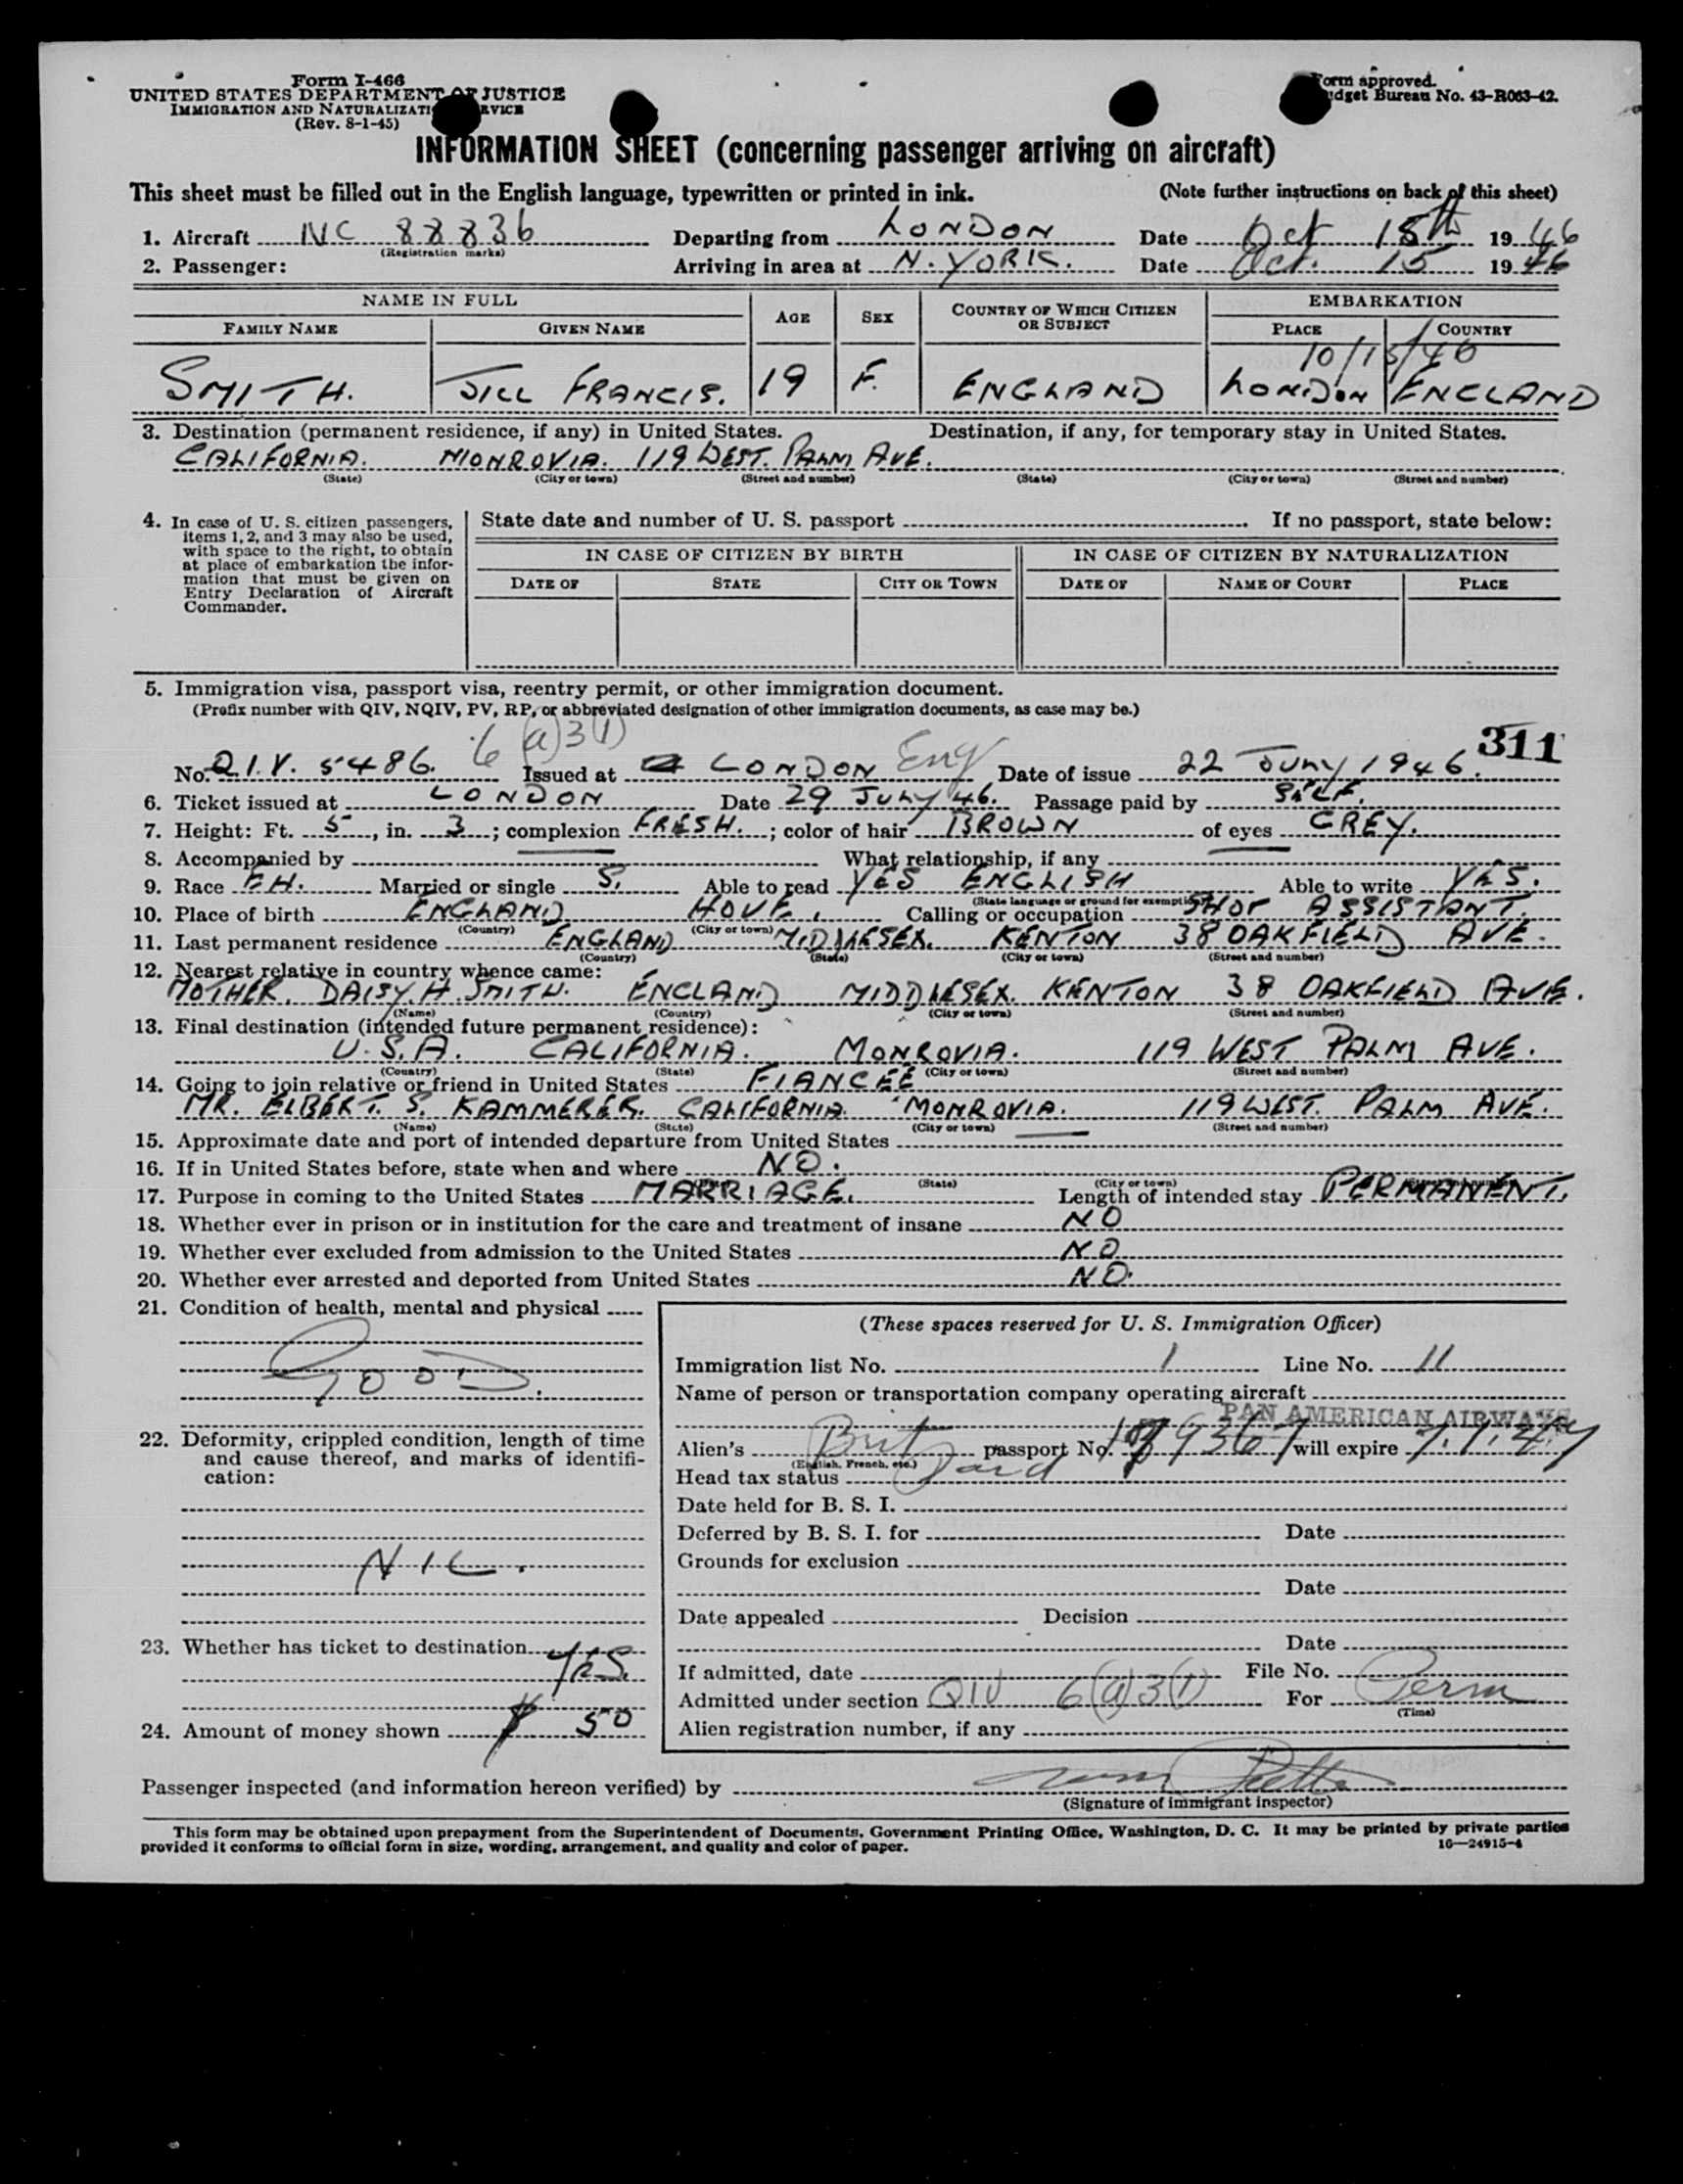 Form I-466
UNITED STATES DEPARTMENT OF JUSTICE
IMMIGRATION AND NATURALIZATION SERVICE
(Rev. 8-1-45)
Form approved.
Budget Bureau No. 43-R063-42.
INFORMATION SHEET (concerning passenger arriving on aircraft)
This sheet must be filled out in the English language, typewritten or printed in ink. (Note further instructions on back of this sheet)
1. Aircraft NC 88836 Departing from LONDON Date Oct 15th 1946
(Registration marks)
2. Passenger: Arriving in area at N. YORK. Date Oct. 15 1946
NAME IN FULL AGE SEX COUNTRY OF WHICH CITIZEN OR SUBJECT EMBARKATION
FAMILY NAME GIVEN NAME PLACE COUNTRY
10/15/46
SMITH. JILL FRANCIS. 19 F. ENGLAND LONDON ENGLAND
3. Destination (permanent residence, if any) in United States. Destination, if any, for temporary stay in United States.
CALIFORNIA. MONROVIA. 119 WEST. PALM AVE.
(State) (City or town) (Street and number) (State) (City or town) (Street and number)
4. In case of U. S. citizen passengers, items 1, 2, and 3 may also be used, with space to the right, to obtain at place of embarkation the information that must be given on Entry Declaration of Aircraft Commander.
State date and number of U. S. passport If no passport, state below:
IN CASE OF CITIZEN BY BIRTH IN CASE OF CITIZEN BY NATURALIZATION
DATE OF STATE CITY OR TOWN DATE OF NAME OF COURT PLACE
5. Immigration visa, passport visa, reentry permit, or other immigration document.
(Prefix number with QIV, NQIV, PV, RP, or abbreviated designation of other immigration documents, as case may be.)
6(a)3(1)
311
No. Q.I.V. 5486. Issued at LONDON Eng Date of issue 22 JULY 1946.
6. Ticket issued at LONDON Date 29 JULY 46. Passage paid by SELF.
7. Height: Ft. 5, in. 3; complexion FRESH.; color of hair BROWN of eyes GREY.
8. Accompanied by What relationship, if any
9. Race E.H. Married or single S. Able to read YES ENGLISH Able to write YES.
(State language or ground for exemption)
10. Place of birth ENGLAND HOVE. Calling or occupation SHOP ASSISTANT.
(Country) (City or town)
11. Last permanent residence ENGLAND MIDDLESEX. KENTON 38 OAKFIELD AVE.
(Country) (State) (City or town) (Street and number)
12. Nearest relative in country whence came:
MOTHER. DAISY. H. SMITH. ENGLAND MIDDLESEX. KENTON 38 OAKFIELD AVE.
(Name) (Country) (City or town) (Street and number)
13. Final destination (intended future permanent residence):
U.S.A. CALIFORNIA. MONROVIA. 119 WEST PALM AVE.
(Country) (State) (City or town) (Street and number)
14. Going to join relative or friend in United States FIANCÉE
MR. ELBERT. S. KAMMERER. CALIFORNIA. MONROVIA. 119 WEST. PALM AVE.
(Name) (State) (City or town) (Street and number)
15. Approximate date and port of intended departure from United States
16. If in United States before, state when and where NO.
(State) (City or town) (Street and number)
17. Purpose in coming to the United States MARRIAGE. Length of intended stay PERMANENT.
18. Whether ever in prison or in institution for the care and treatment of insane NO
19. Whether ever excluded from admission to the United States NO
20. Whether ever arrested and deported from United States NO.
21. Condition of health, mental and physical
GOOD.
22. Deformity, crippled condition, length of time and cause thereof, and marks of identification:
NIL.
23. Whether has ticket to destination YES.
24. Amount of money shown $ 50
(These spaces reserved for U. S. Immigration Officer)
Immigration list No. 1 Line No. 11
Name of person or transportation company operating aircraft
PAN AMERICAN AIRWAYS
Alien's Brit passport No. will expire
(English, French, etc.)
Head tax status Paid
Date held for B. S. I.
Deferred by B. S. I. for Date
Grounds for exclusion
Date
Date appealed Decision
Date
If admitted, date File No.
Admitted under section QIV 6(a)3(1) For Perm
(Time)
Alien registration number, if any
Passenger inspected (and information hereon verified) by
(Signature of immigrant inspector)
This form may be obtained upon prepayment from the Superintendent of Documents, Government Printing Office, Washington, D. C. It may be printed by private parties
provided it conforms to official form in size, wording, arrangement, and quality and color of paper. 16—24915-4